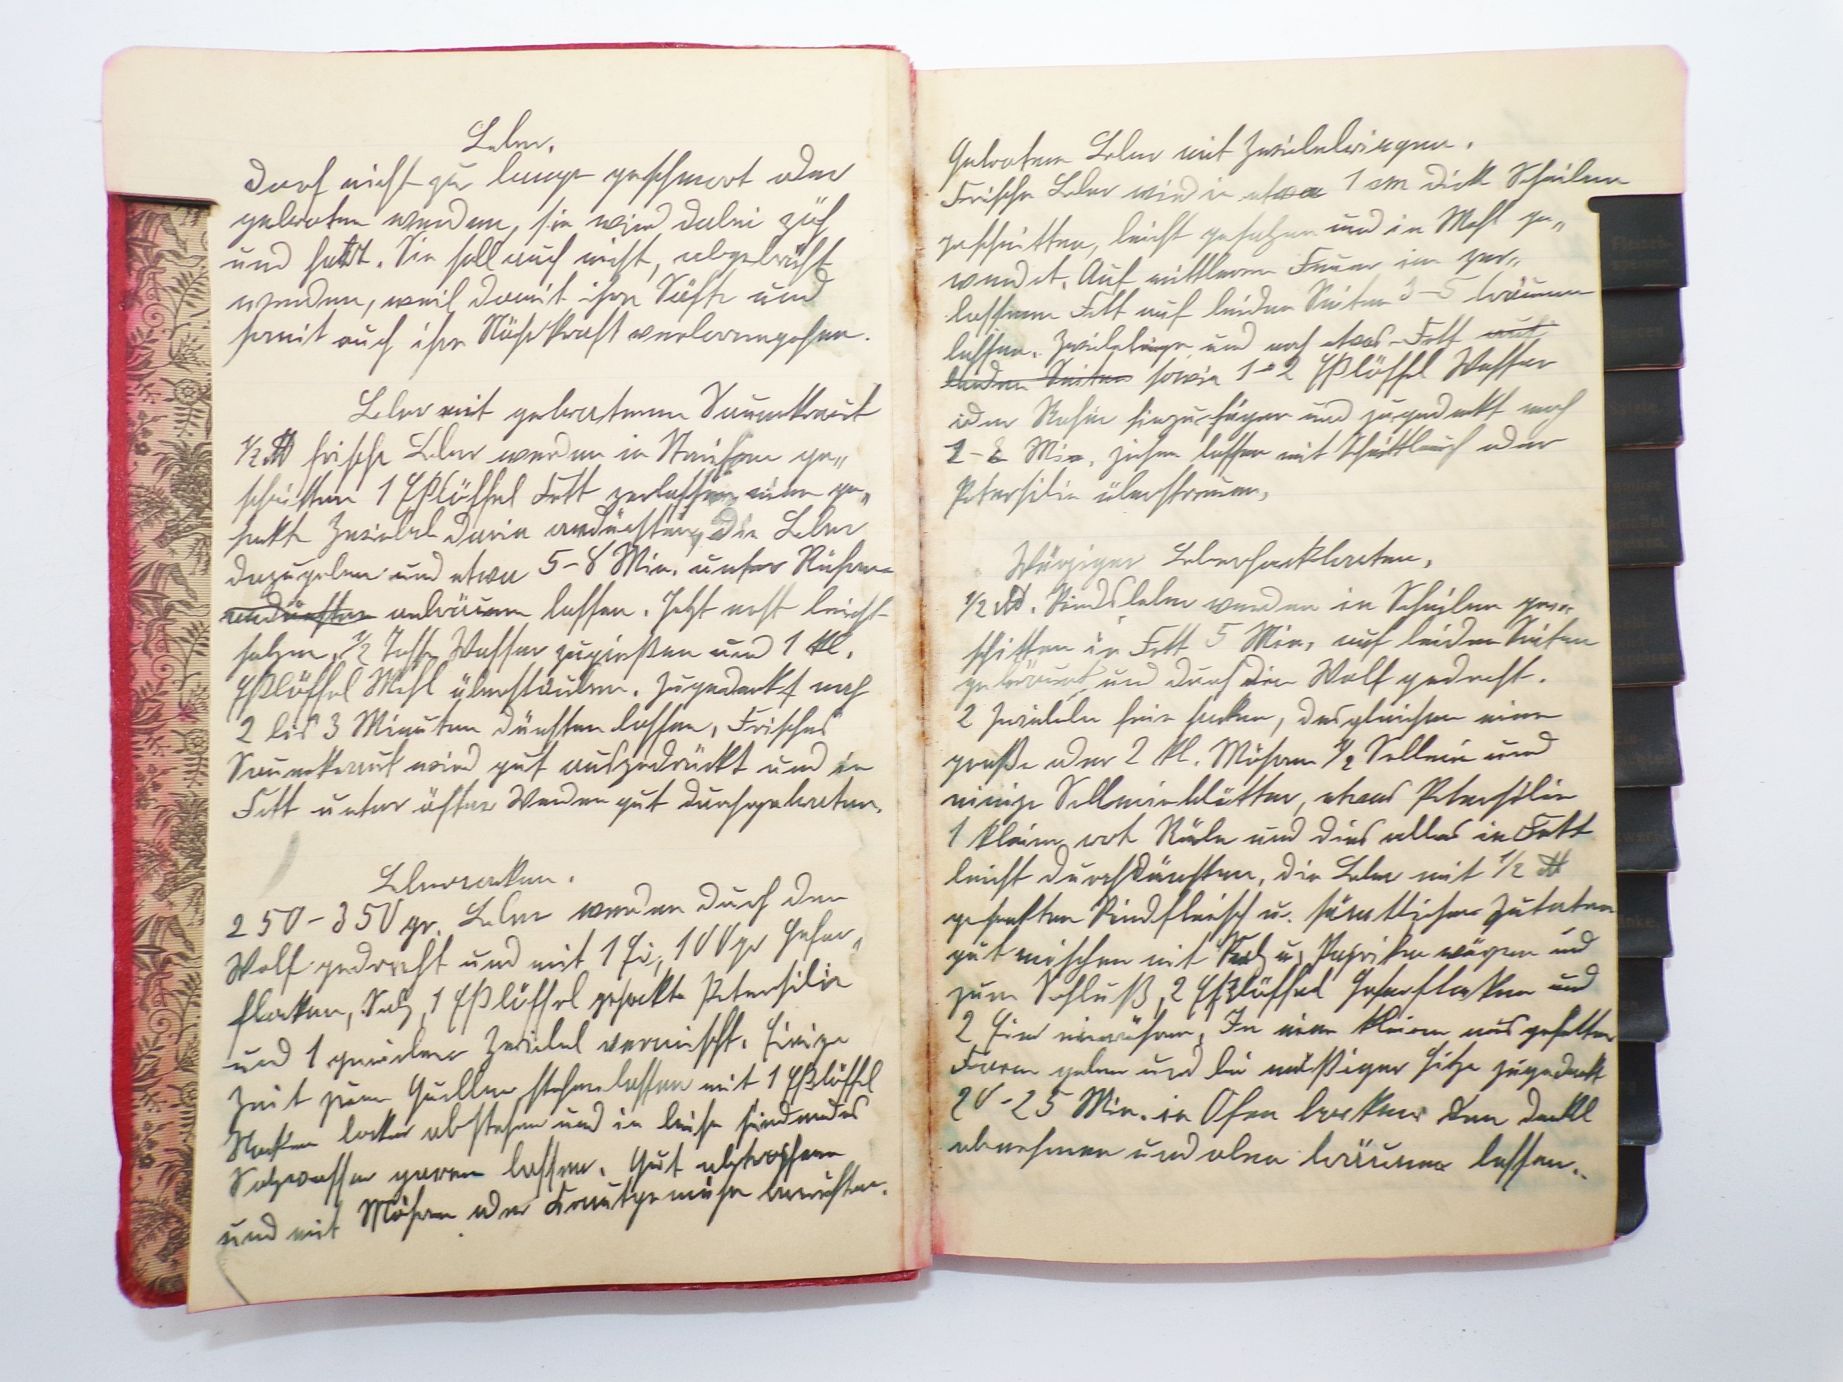 Leber.
Darf nicht zu lange geschmort oder
gebraten werden, sie wird dabei zäh
und hart. Sie soll auch nicht, abgebrüht
werden, weil damit ihre Säfte und
somit auch ihre Nährkraft verlorengehen.
Leber mit gebratenem Sauerkraut
1/2 ℔ frische Leber werden in Streifen ge„
schnitten 1 Eßlöffel Fett zerlassen eine ge„
hackte Zwiebel darin andünsten, Die Leber
dazugeben und etwa 5-8 Min. unter Rühren
andünsten anbräunen lassen. Jetzt erst leicht
salzen, 1/2 Tasse Wasser zugießen und 1 kl.
Eßlöffel Mehl überstäuben. Zugedeckt noch
2 bis 3 Minuten dünsten lassen, Frisches
Sauerkraut wird gut ausgedrückt und in
Fett unter öfter Wenden gut durchgebraten.
Lebernocken.
250-350 gr. Leber werden durch den
Wolf gedreht und mit 1 Ei, 100 gr Hafer„
flocken, Salz, 1 Eßlöffel gehackte Petersilie
und 1 geriebene Zwiebel vermischt. Einige
Zeit zum Quellen stehen lassen mit 1 Eßlöffel
Nocken locker abstehen und in leise siedendes
Salzwasser garen lassen. Gut abtropfen
und mit Möhren oder Krautgemüse anrichten.
Gebratene Leber mit Zwiebelringen.
Frische Leber wird in etwa 1 cm dick Scheiben
geschnitten, leicht gesalzen und in Mehl ge„
wendet. Auf mittlerem Feuer im zer„
lassenem Fett auf beiden Seiten 3-5 bräunen
lassen. Zwiebelringe und noch etwas Fett auf
beiden Seiten sowie 1-2 Eßlöffel Wasser
oder Rahm hinzufügen und zugedeckt noch
2-3 Min. ziehen lassen mit Schnittlauch oder
Petersilie überstreuen.
Würziger Leberhackbraten.
1/2 ℔. Rindsleber werden in Scheiben ge„
schnitten in Fett 5 Min. auf beiden Seiten
gebräunt und durch den Wolf gedreht.
2 Zwiebeln fein hacken, desgleichen eine
große oder 2 kl. Möhren 1/2 Sellerie und
einige Sellerieblätter, etwas Petersilie
1 kleine rot Rübe und dies alles in Fett
leicht durchdünsten, die Leber mit 1/2 ℔
gehackten Rindfleisch u. sämtlichen Zutaten
gut mischen mit Salz u. Paprika würzen und
zum Schluß, 2 Eßlöffel Haferflocken und
2 Eier einrühren. In eine kleine ausgefettete
Form geben und bei mäßiger Hitze zugedeckt
20-25 Min. in Ofen backen den Deckl
abnehmen und oben bräunen lassen.